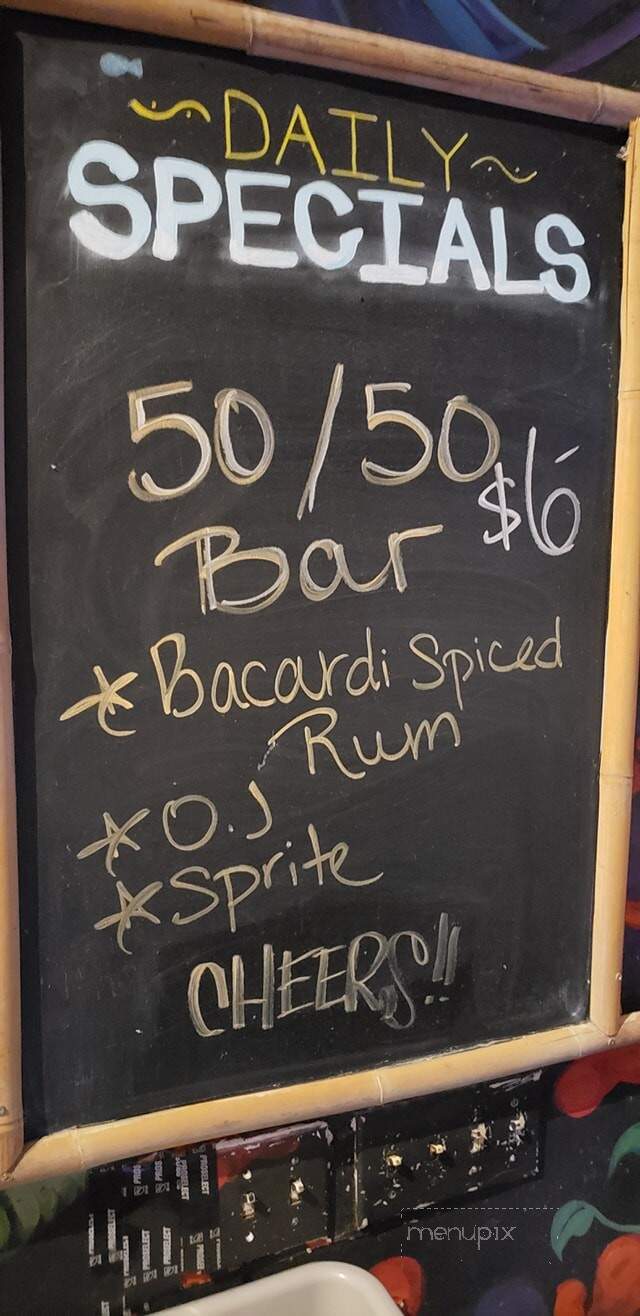 ~DAILY~
SPECIALS
50/50
$6
Bar
*Bacardi Spiced
Rum
*O.J
*Sprite
CHEERS!!
PROSELECT
PROSELECT
PROSELECT
menupix